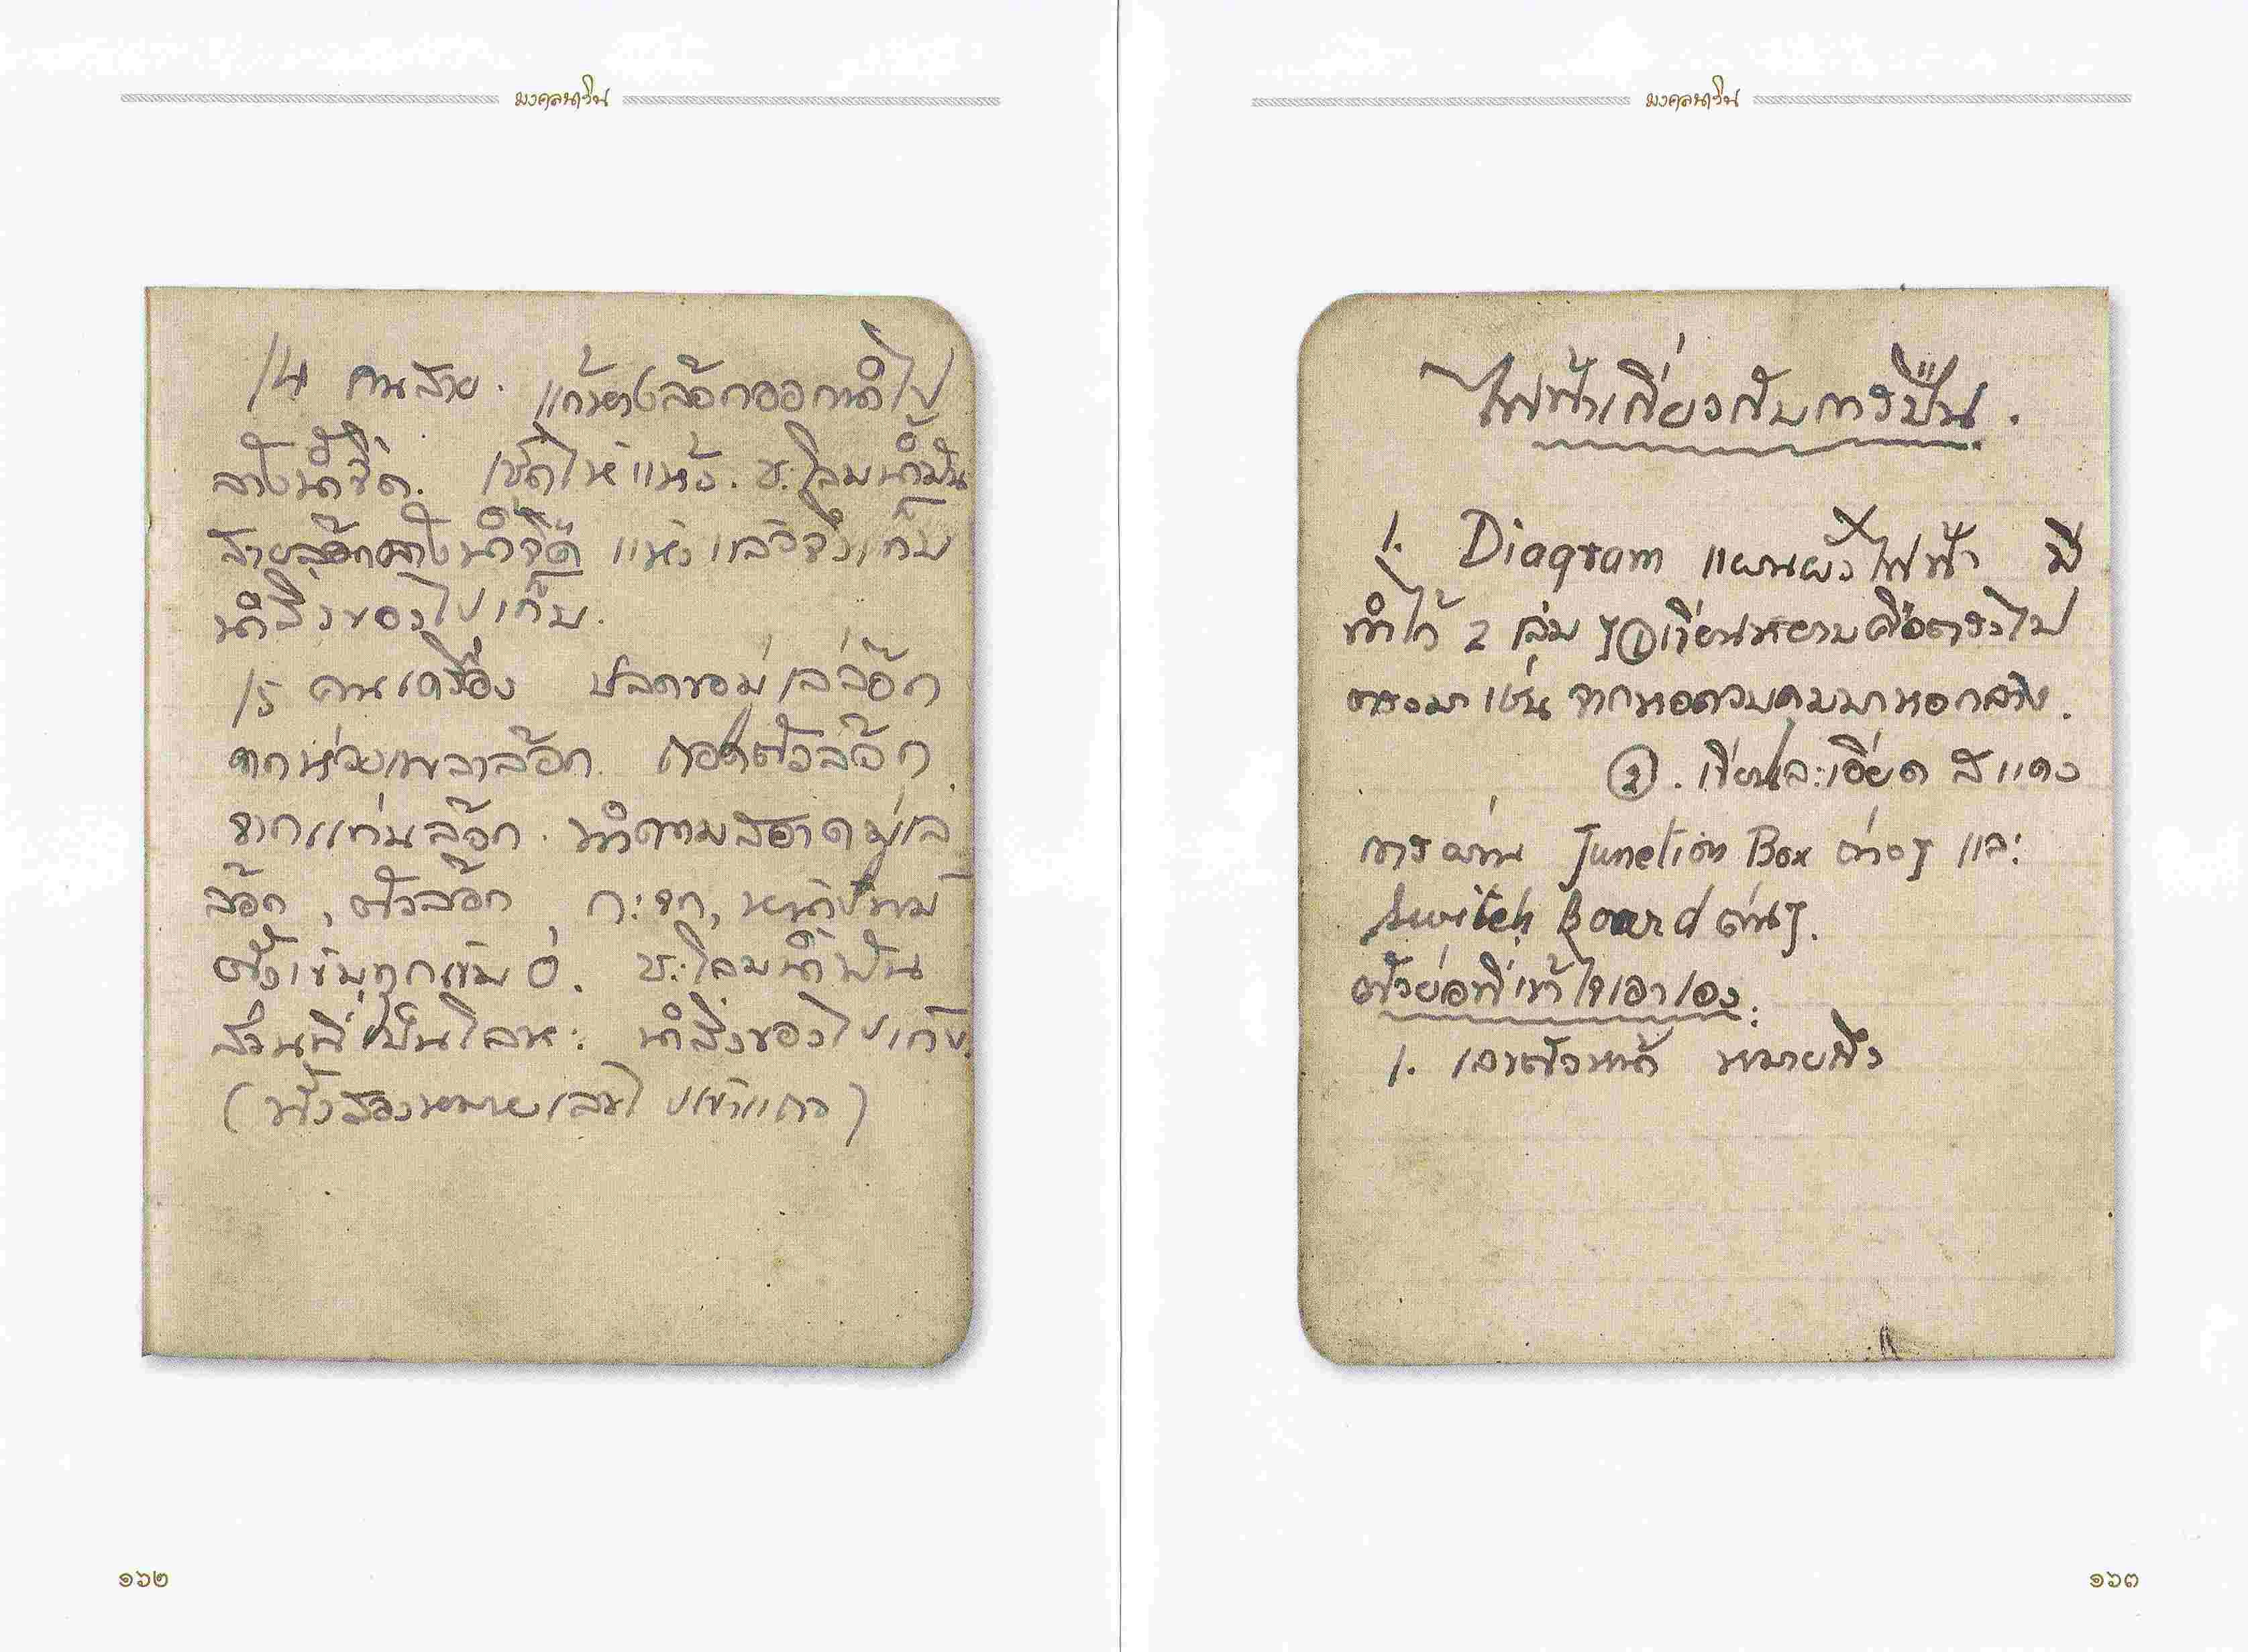 มงคลนาวิน
/4 คนสาย. แก้หางล๊อกออกนำไป
ล้างน้ำจืด. เช็ดให้แห้ง. ช.โลมน้ำมัน
สายล๊อกล้างน้ำจืด แห้งแล้วจึงเก็บ
นำสิ่งของไปเก็บ.
/5 คนเครื่อง ปลดขอ
จากห่วงเพลาล๊อก. ถอดตัวล๊อก
จากแท่นล๊อก. ทำความสอาด
ล๊อก, ตัวล๊อก, ก.จก,
ช.โลมน้ำมัน
ส่วนที่เป็นโลห: นำสิ่งของไปเก็บ.
(ทั้งสองหมายเลขไปเข้าแถว)
๑๖๒
มงคลนาวิน
ไฟฟ้าเกี่ยวกับการปืน.
1. Diagram แผนผังไฟฟ้า มี
ทำได้ 2 เล่ม ๆ ① เขียนหยาบคือตรงไป
ตรงมา เช่น จากหอควบคุมมาหอกลาง.
②. เขียนละเอียด สแดง
การผ่าน Junction Box ต่างๆ แล:
Switch Board ต่างๆ.
ตัวย่อที่เข้าใจเอาเอง:
1. เอาตัวหน้า หมายถึง
๑๖๓